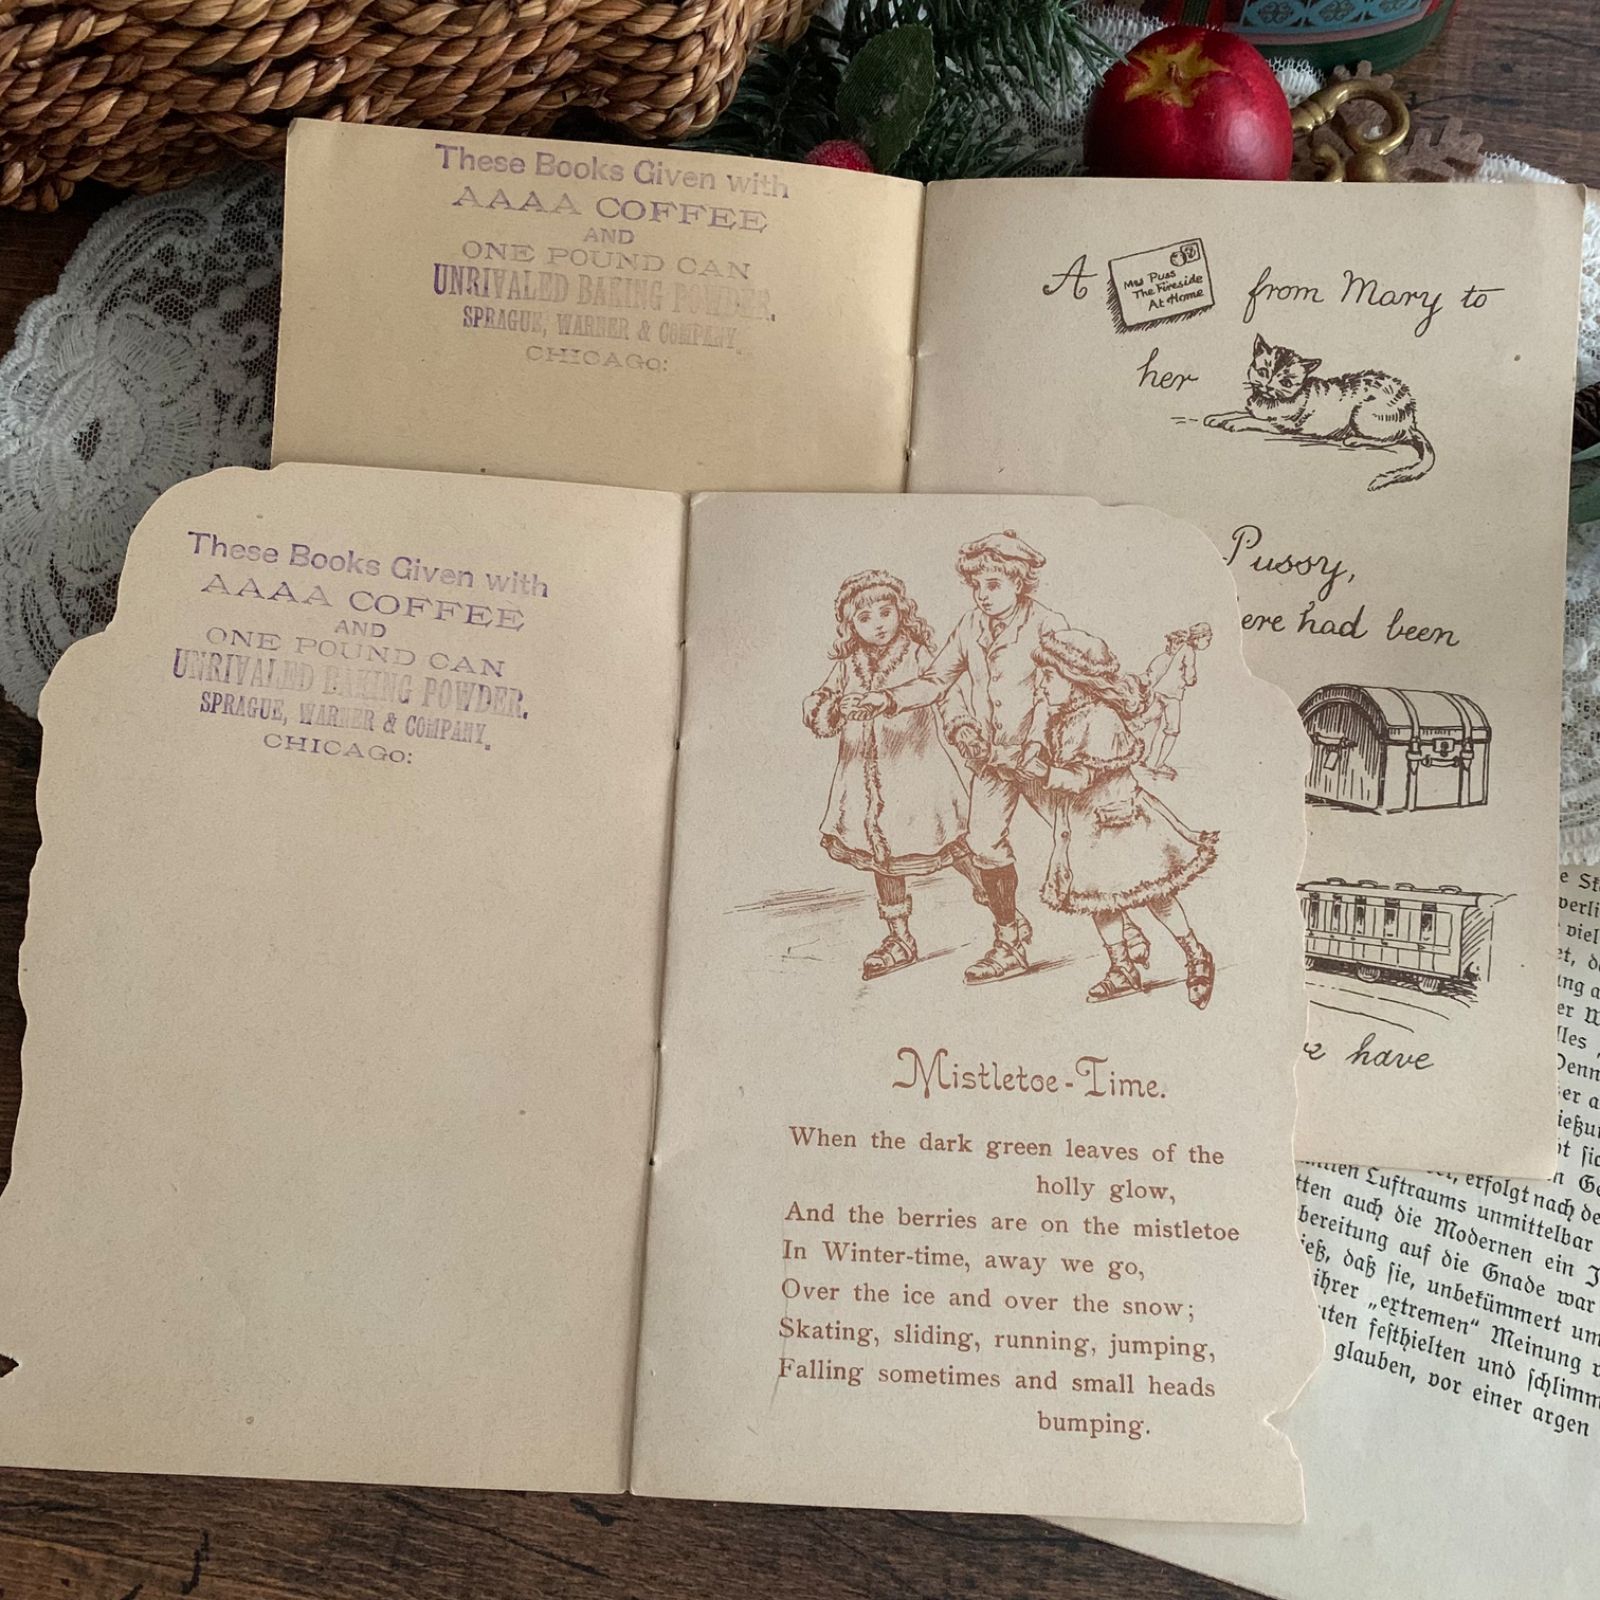 These Books Given with
AAAA COFFEE
AND
ONE POUND CAN
UNRIVALED BAKING POWDER.
SPRAGUE, WARNER & COMPANY,
CHICAGO:
A
Mrs Puss
The Fireside
At Home
from Mary to
her
Pussy,
ere had been
have
These Books Given with
AAAA COFFEE
AND
ONE POUND CAN
UNRIVALED BAKING POWDER.
SPRAGUE, WARNER & COMPANY,
CHICAGO:
Mistletoe-Time.
When the dark green leaves of the
holly glow,
And the berries are on the mistletoe
In Winter-time, away we go,
Over the ice and over the snow;
Skating, sliding, running, jumping,
Falling sometimes and small heads
bumping.
Luftraums unmittelbar
erfolgt nach de
auch die Modernen ein
bereitung auf die Gnade war
daß sie, unbekümmert um
ihrer „extremen“ Meinung
festhielten und schlimm
glauben, vor einer argen